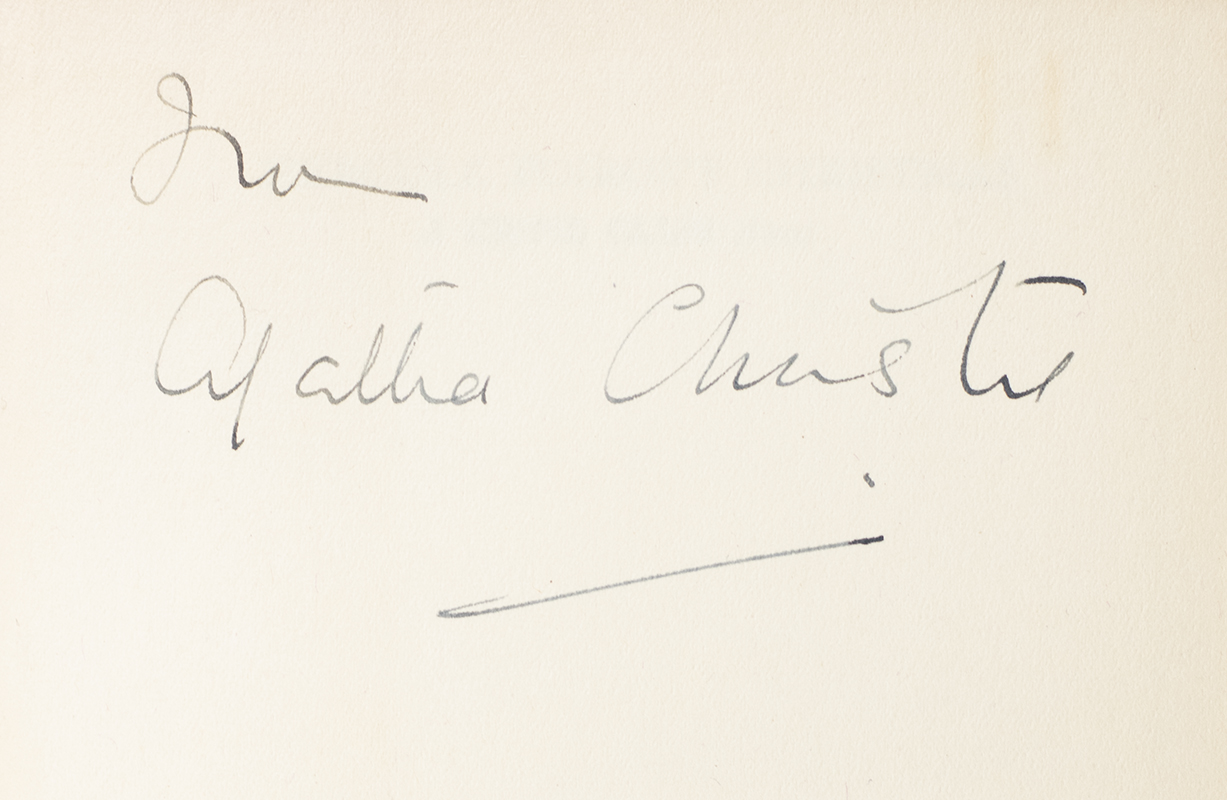 from
Agatha Christie